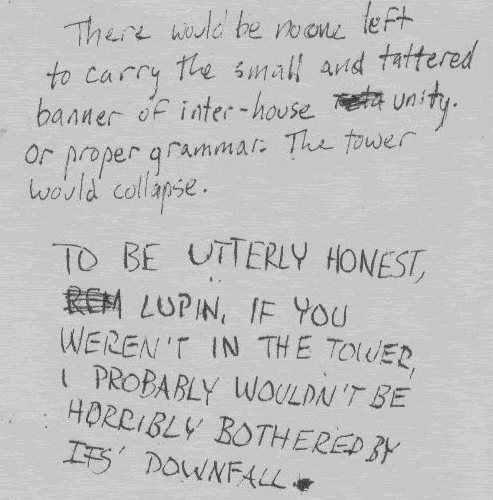 There would be noone left
to carry the small and tattered
banner of inter-house unity.
Or proper grammar. The tower
would collapse.
TO BE UTTERLY HONEST,
REM LUPIN, IF YOU
WEREN'T IN THE TOWER,
I PROBABLY WOULDN'T BE
HORRIBLY BOTHERED BY
ITS' DOWNFALL.